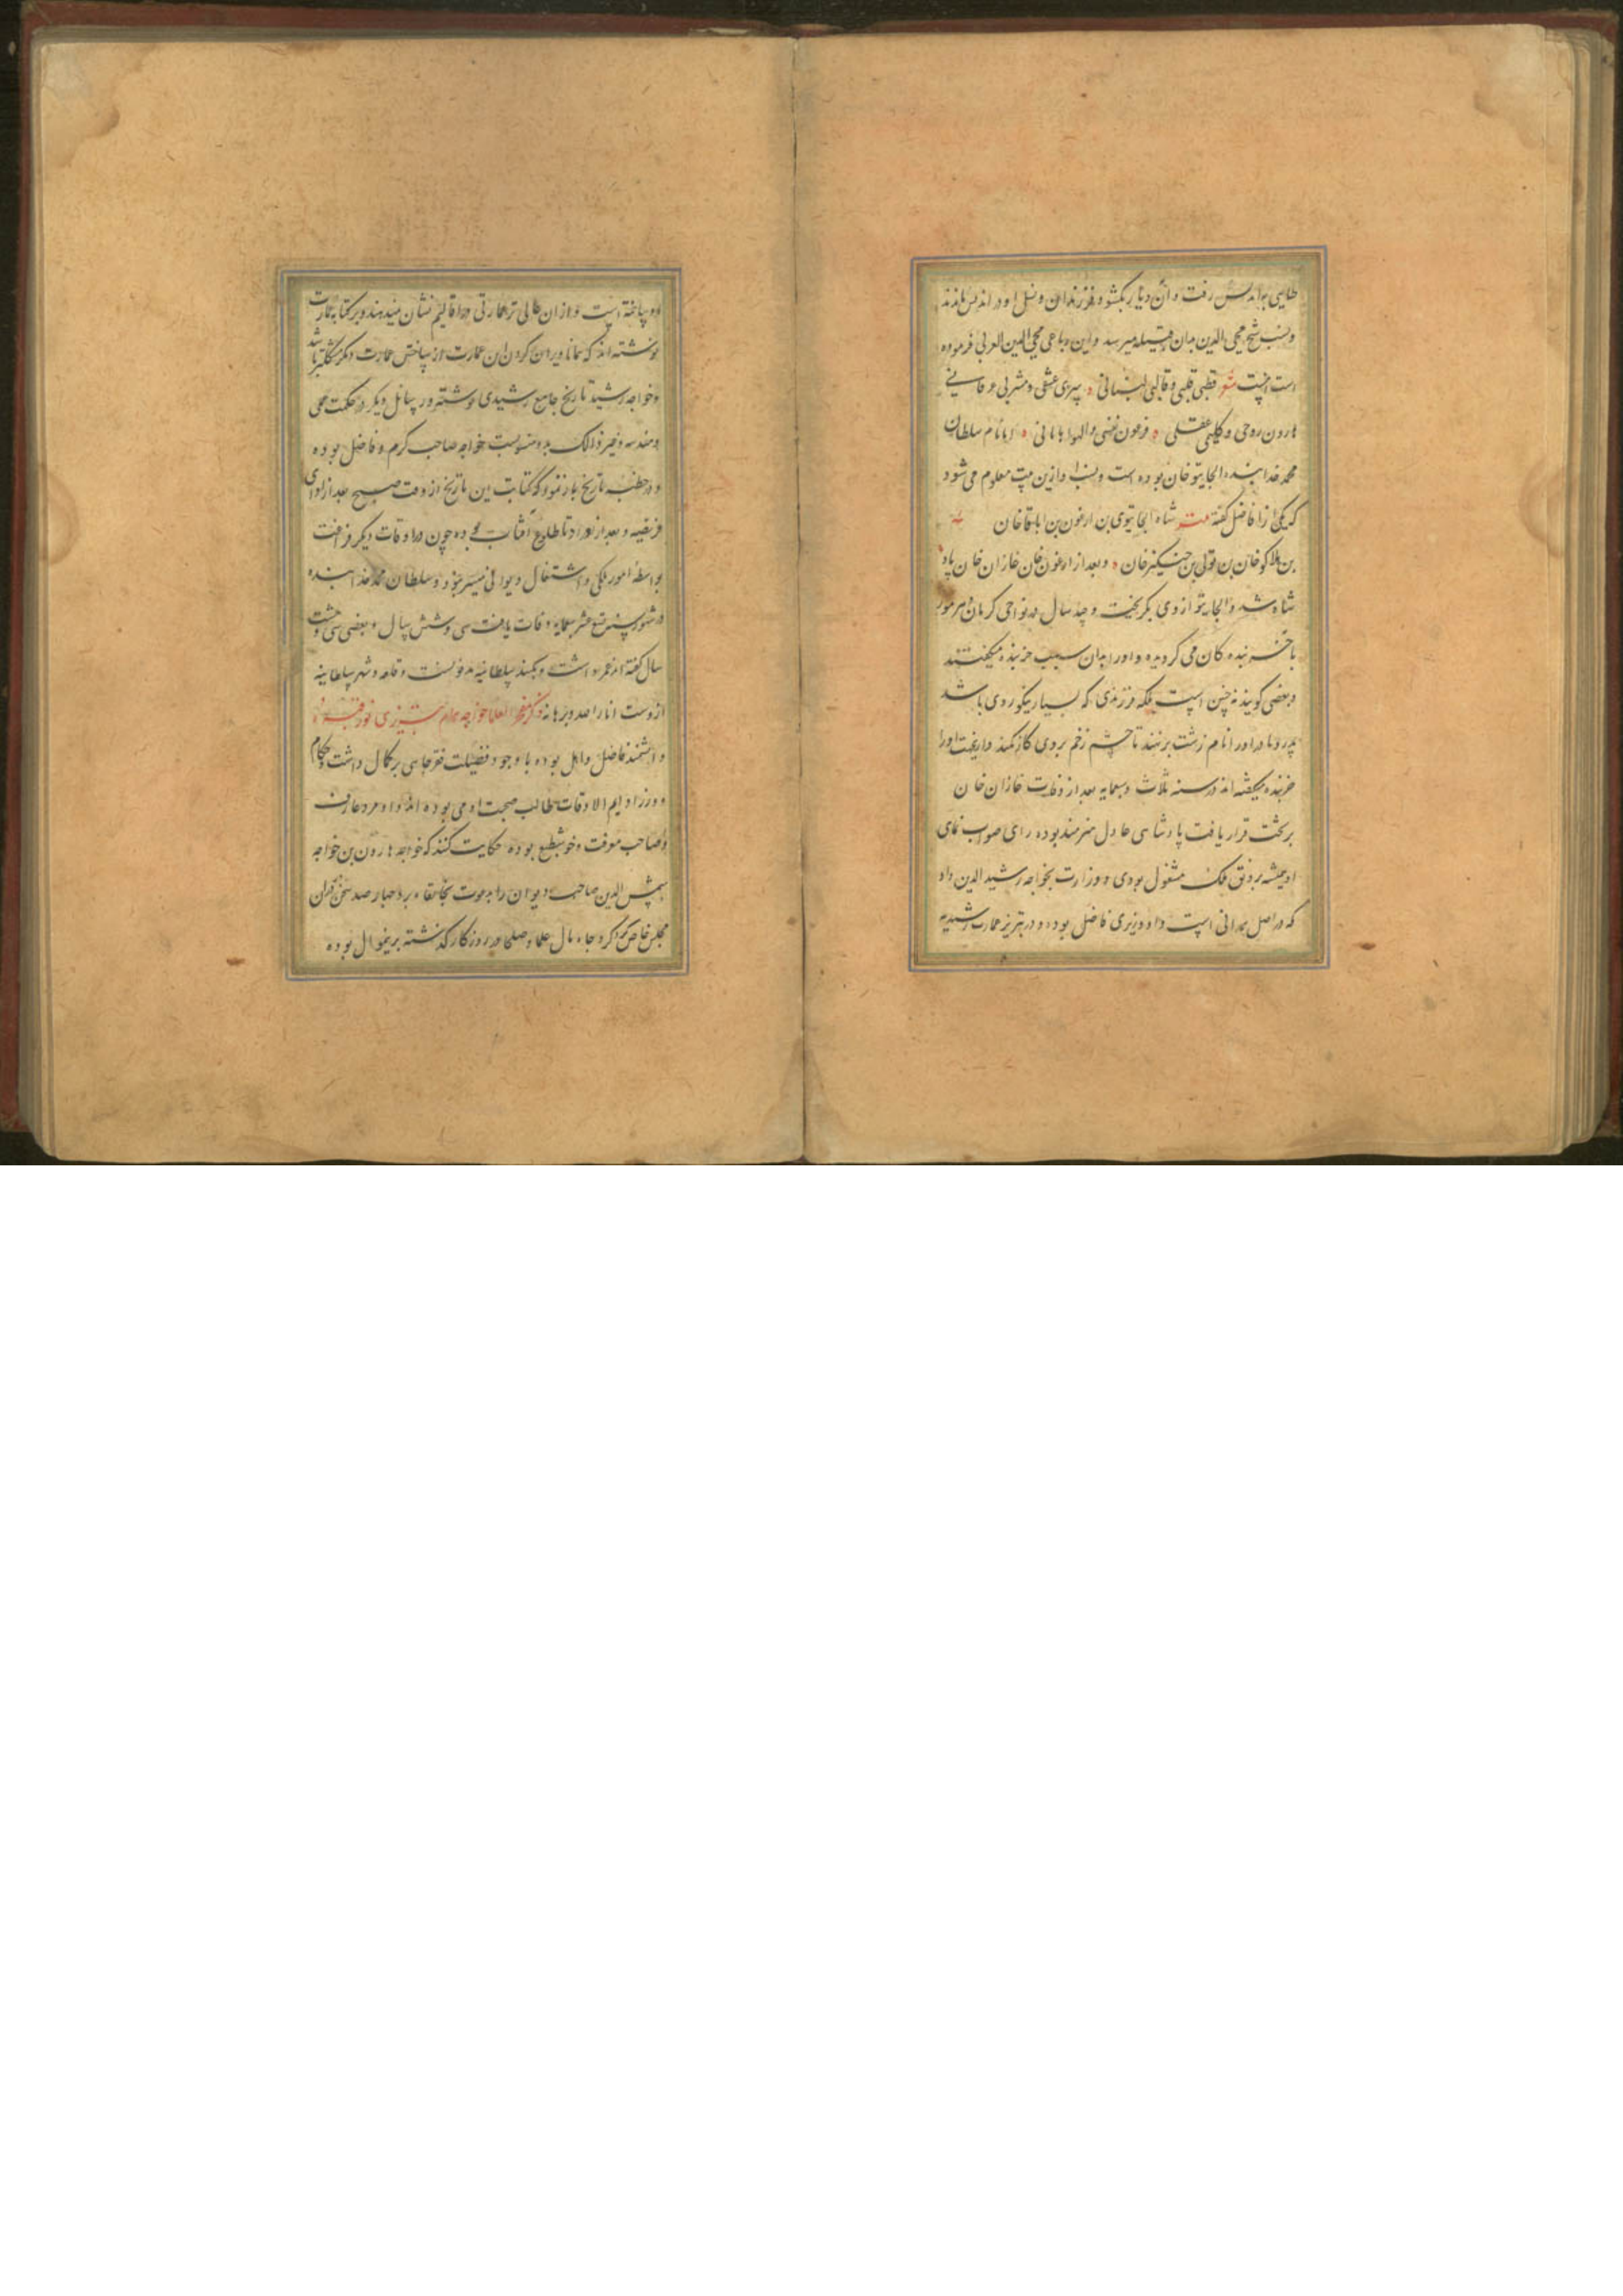 طایی به اندلس رفت و آن دیار بگشود و فرزندان و نسل او در اندلس ماندند
و نسب شیخ محیی الدین بدان قبیله میرسد و این رباعی محیی الدین العربی فرموده
است اینست شعر قطبی قلبی و قالبی لبنانی ٥ سری عشقی و مشربی عرفانی
هارون روحی و کلیمی عقلی ٥ فرعون نفسی والهوا هامانی ٥ اما نام سلطان
محمد خدابنده الجایتو خان بوده است و نسب او ازین بیت معلوم می شود
که یکی از افاضل گفته بیت شاه الجایتوی بن ارغون بن اباقا خان
بن هلاکو خان بن تولی بن چنگیز خان ٥ و بعد از ارغون خان غازان خان پاد
شاه شد و الجایتو از وی بگریخت و چند سال در نواحی کرمان و هرموز
با خربنده کان می گردیده و اورا بدان سبب خربنده میگفتند
و بعضی گویند نه چنین است بلکه فرزندی که بسیار نیکو روی باشد
پدر و مادر اورا نام زشت برنهند تا چشم زخم بر وی کار نکند و ازینجهت اورا
خربنده میگفته اند در سنه ثلاث و سبعمایه بعد از وفات غازان خان
بر تخت قرار یافت پادشاهی عادل هنرمند بوده رای صواب نمای
او همیشه برونق ملک مشغول بودی و وزارت بخواجه رشید الدین داد
که در اصل همدانی است و او وزیری فاضل بوده و در تبریز عمارت رشیدیه
او ساخته است و از ان عالی تر عمارتی در اقالیم نشان نمیدهند و بر کتابه عمارت
نوشته اند که همانا ویران کردن این عمارت از ساختن عمارت دیگر مشکلتر باشد
و خواجه رشید تاریخ جامع رشیدی نوشته و رسائل دیگر در حکمت عملی
و هندسه و غیر ذالک بدو منسوبست خواجه صاحب کرم و فاضل بوده
و در خطبه تاریخ باز نمود که کتابت این تاریخ از وقت صبح بعد از ادای
فریضه و بعد از اوراد تا طلوع آفتاب بوده چون در اوقات دیگر فراغت
بواسطه امور ملکی و اشتغال دیوانی میسر نبود و سلطان محمد خدابنده
در شهور سنه تسع عشر سبعمایه وفات یافت سی و شش سال و بعضی سی و هشت
سال گفته اند عمر داشت و بگنبد سلطانیه مدفونست و قلعه و شهر سلطانیه
ازوست انار الله برهانه ذکر العلما خواجه همام تبریزی نور قبره
دانشمند فاضل و اهل بوده با وجود فضیلت بر کمال داشت و حکام
و وزرا دایم الاوقات طالب صحبت او می بوده اند و او مرد عارف
و صاحب معرفت و خوشطبع بوده حکایت کنند که خواجه هارون بن خواجه
شمس الدین صاحب دیوان را بدعوت بخانقاه برد چهار صد صحن
مجلس خاص کرد جاه و مال علما و صلحا در روزگار گذشته برینموال بوده